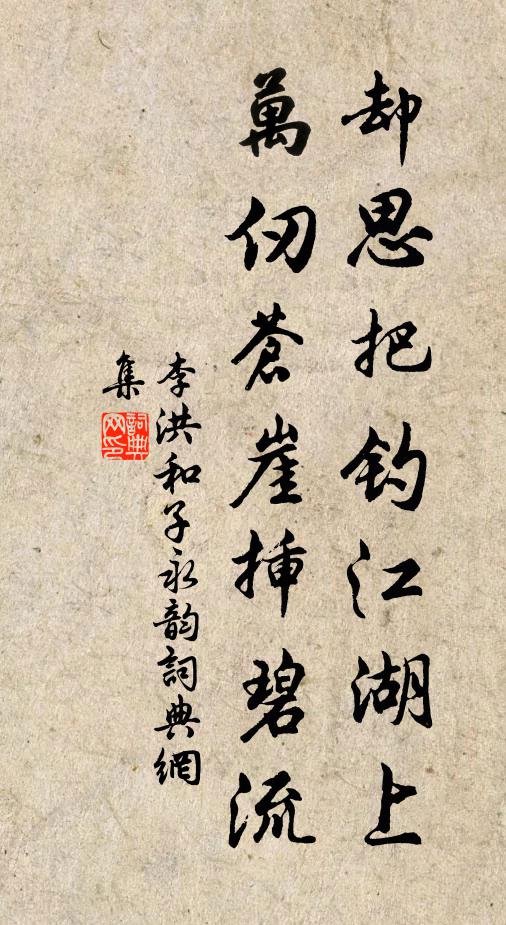 却思把钓江湖上
萬仞蒼崖挿碧流
李洪和子永韵詞典網
集
詞典
网印